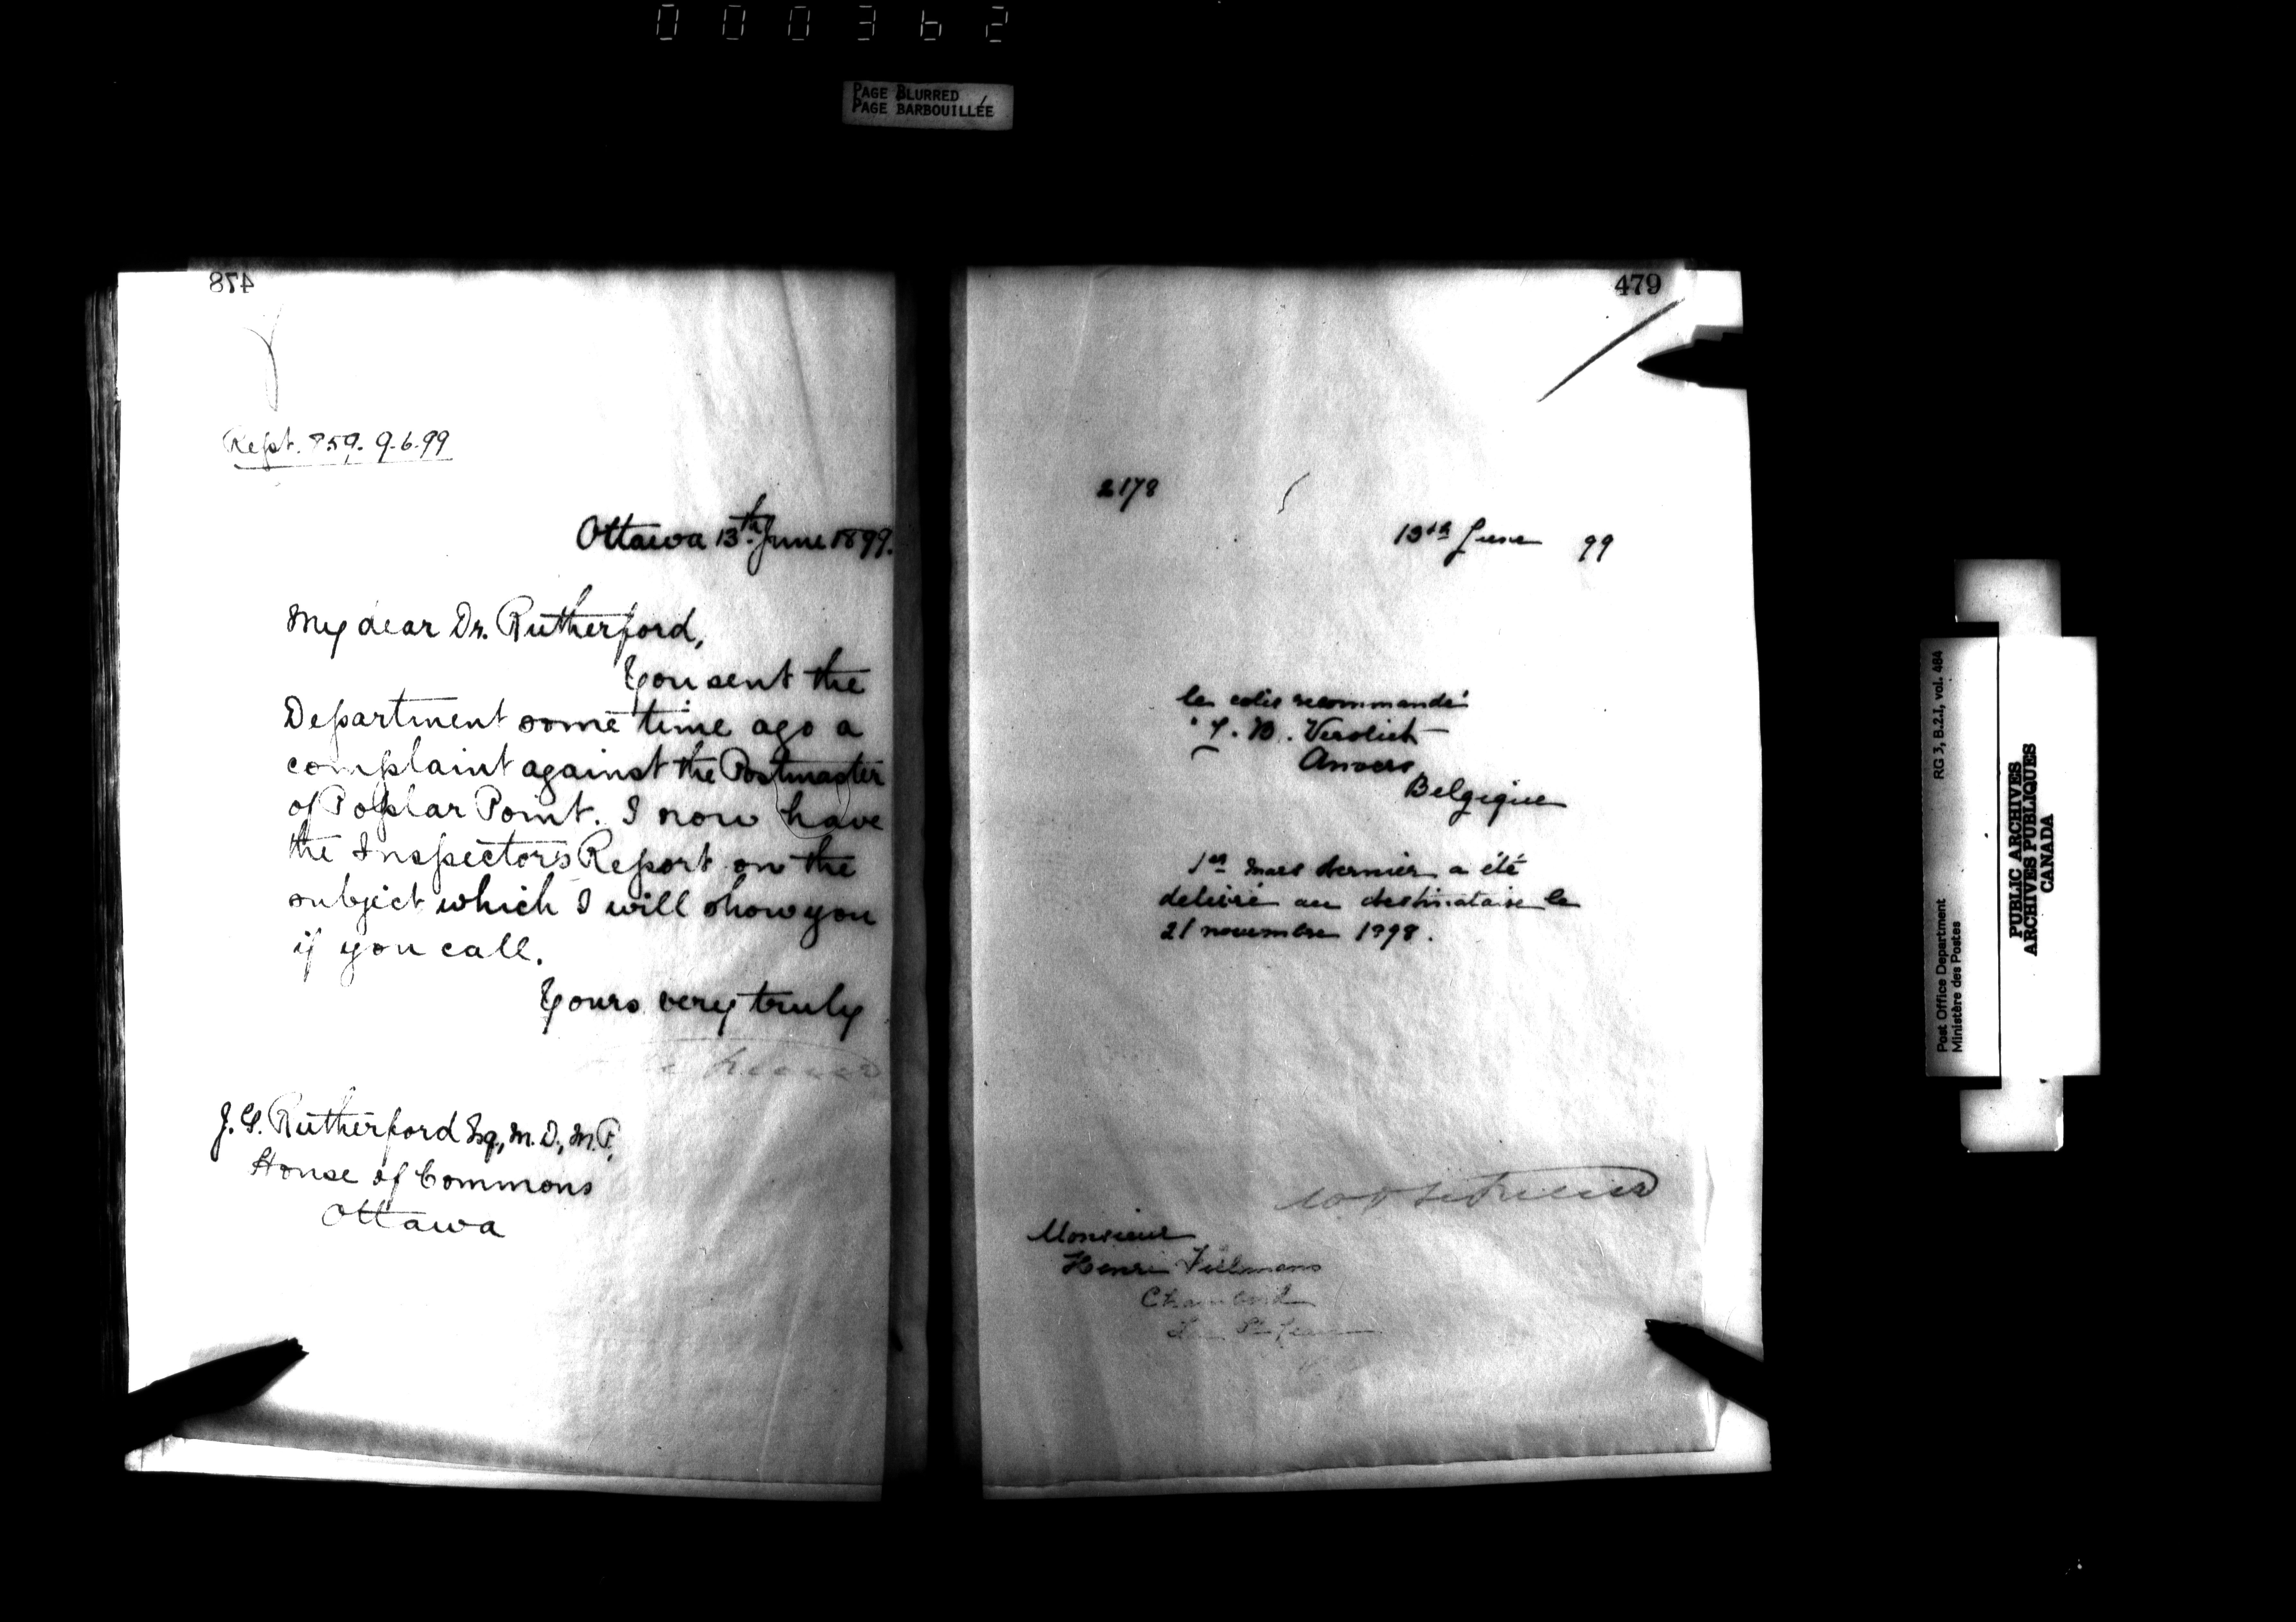 000362
PAGE BLURRED
PAGE BARBOUILLÉE
478
Rept. 859. 9.6.99
Ottawa 13th June 1899.
My dear Dr. Rutherford,
You sent the
Department some time ago a
complaint against the Postmaster
of Poplar Point. I now have
the Inspector's Report on the
subject which I will show you
if you call.
Yours very truly
J. G. Rutherford Esq., M.D., M.P.,
House of Commons
Ottawa
479
2178
13th June 99
le colis recommandé
Anvers
Belgique
1er mars dernier a été
delivré au destinataire le
21 novembre 1898.
Monsieur
Henri
Chambord
Lac St Jean
Post Office Department
Ministère des Postes
RG 3, B.2.I, vol. 484
PUBLIC ARCHIVES
ARCHIVES PUBLIQUES
CANADA